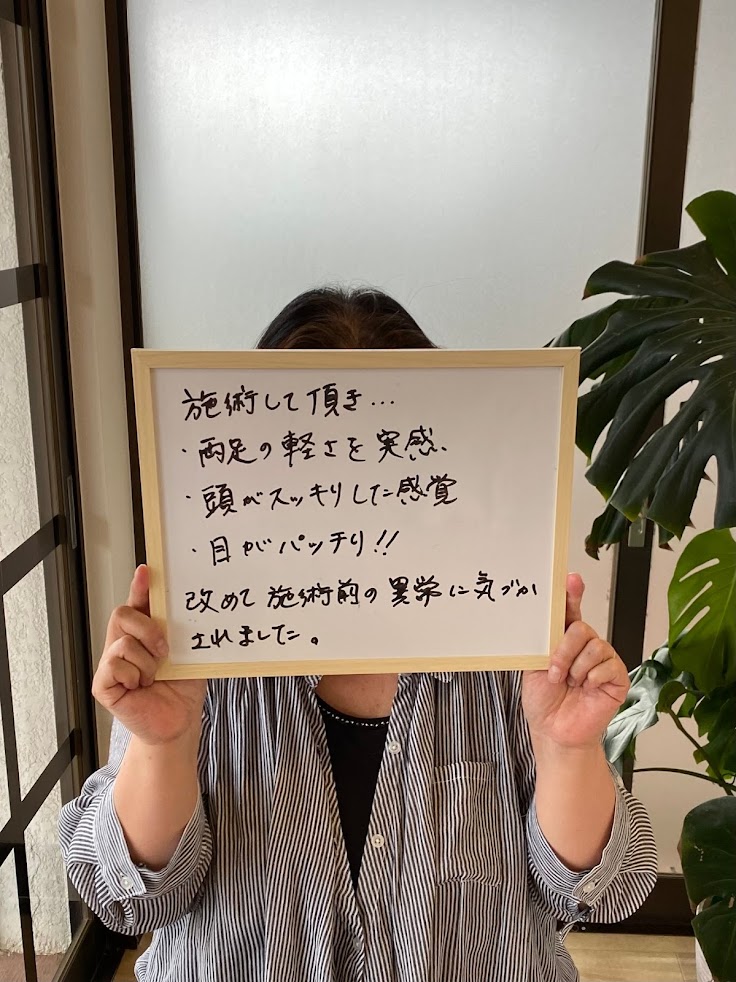 施術して頂き...
・両足の軽さを実感、
・頭がスッキリした感覚
・目がパッチリ!!
改めて施術前の異常に気づか
されました。